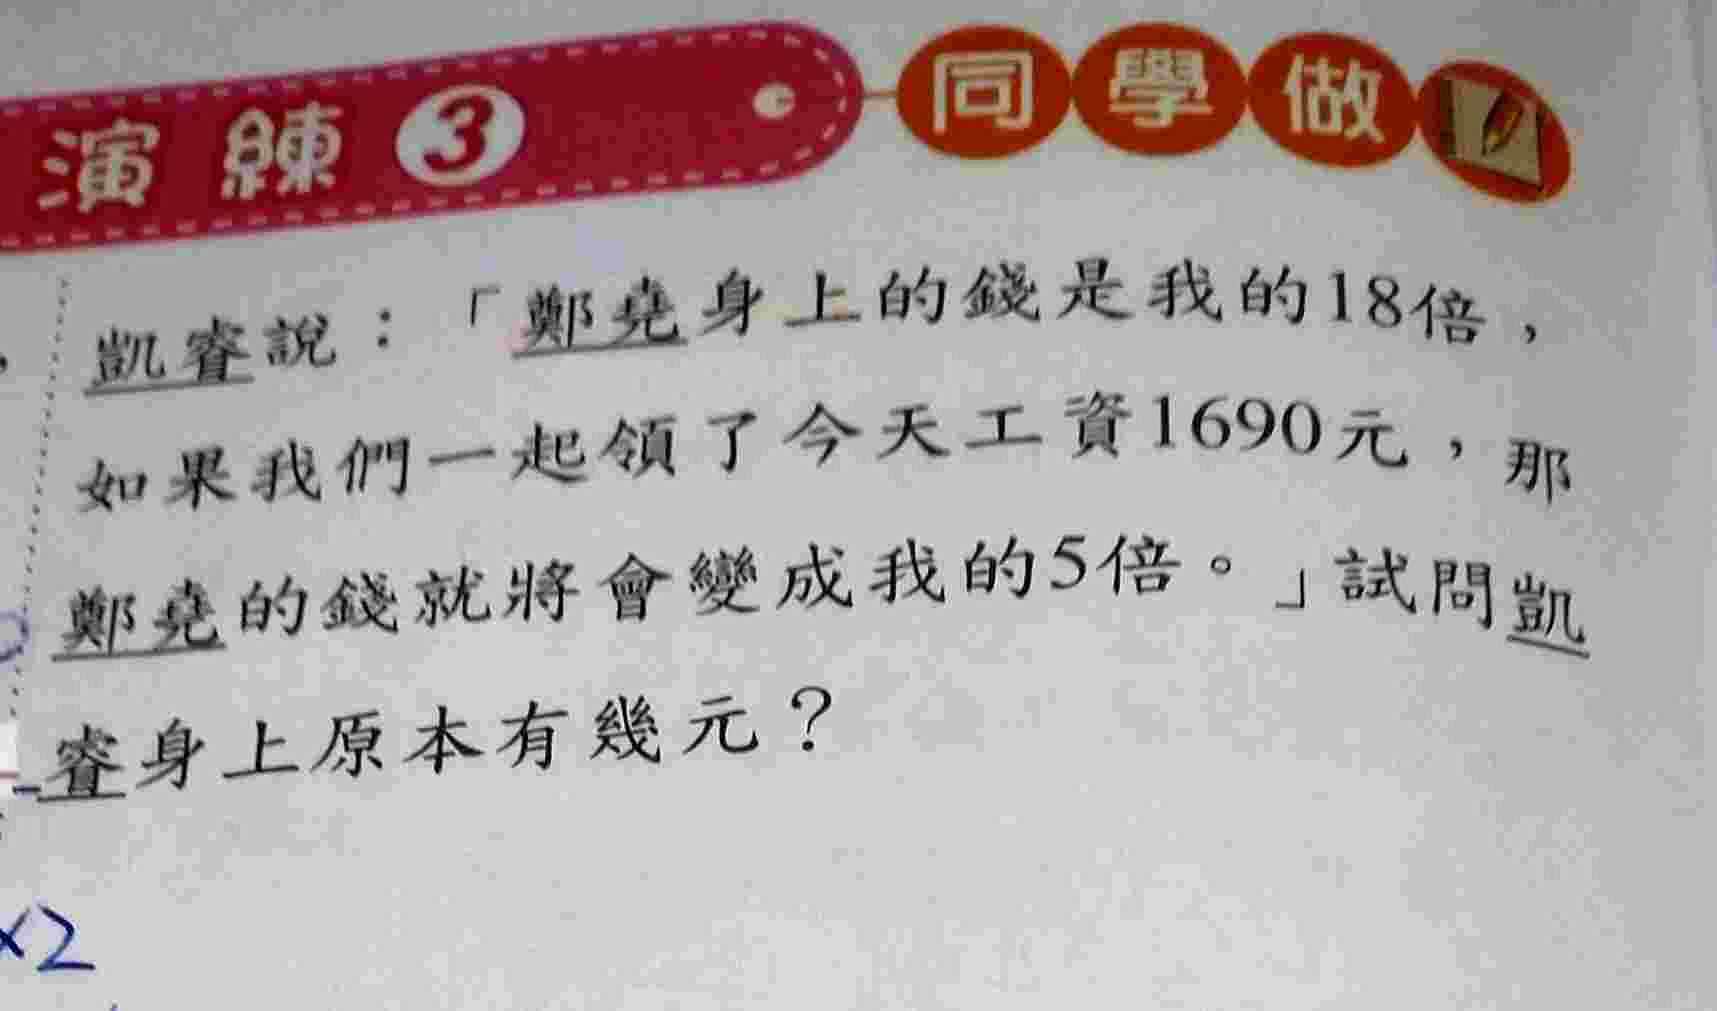 演練3 同學做
凱睿說：「鄭堯身上的錢是我的18倍，
如果我們一起領了今天工資1690元，那
鄭堯的錢就將會變成我的5倍。」試問凱
睿身上原本有幾元？
×2